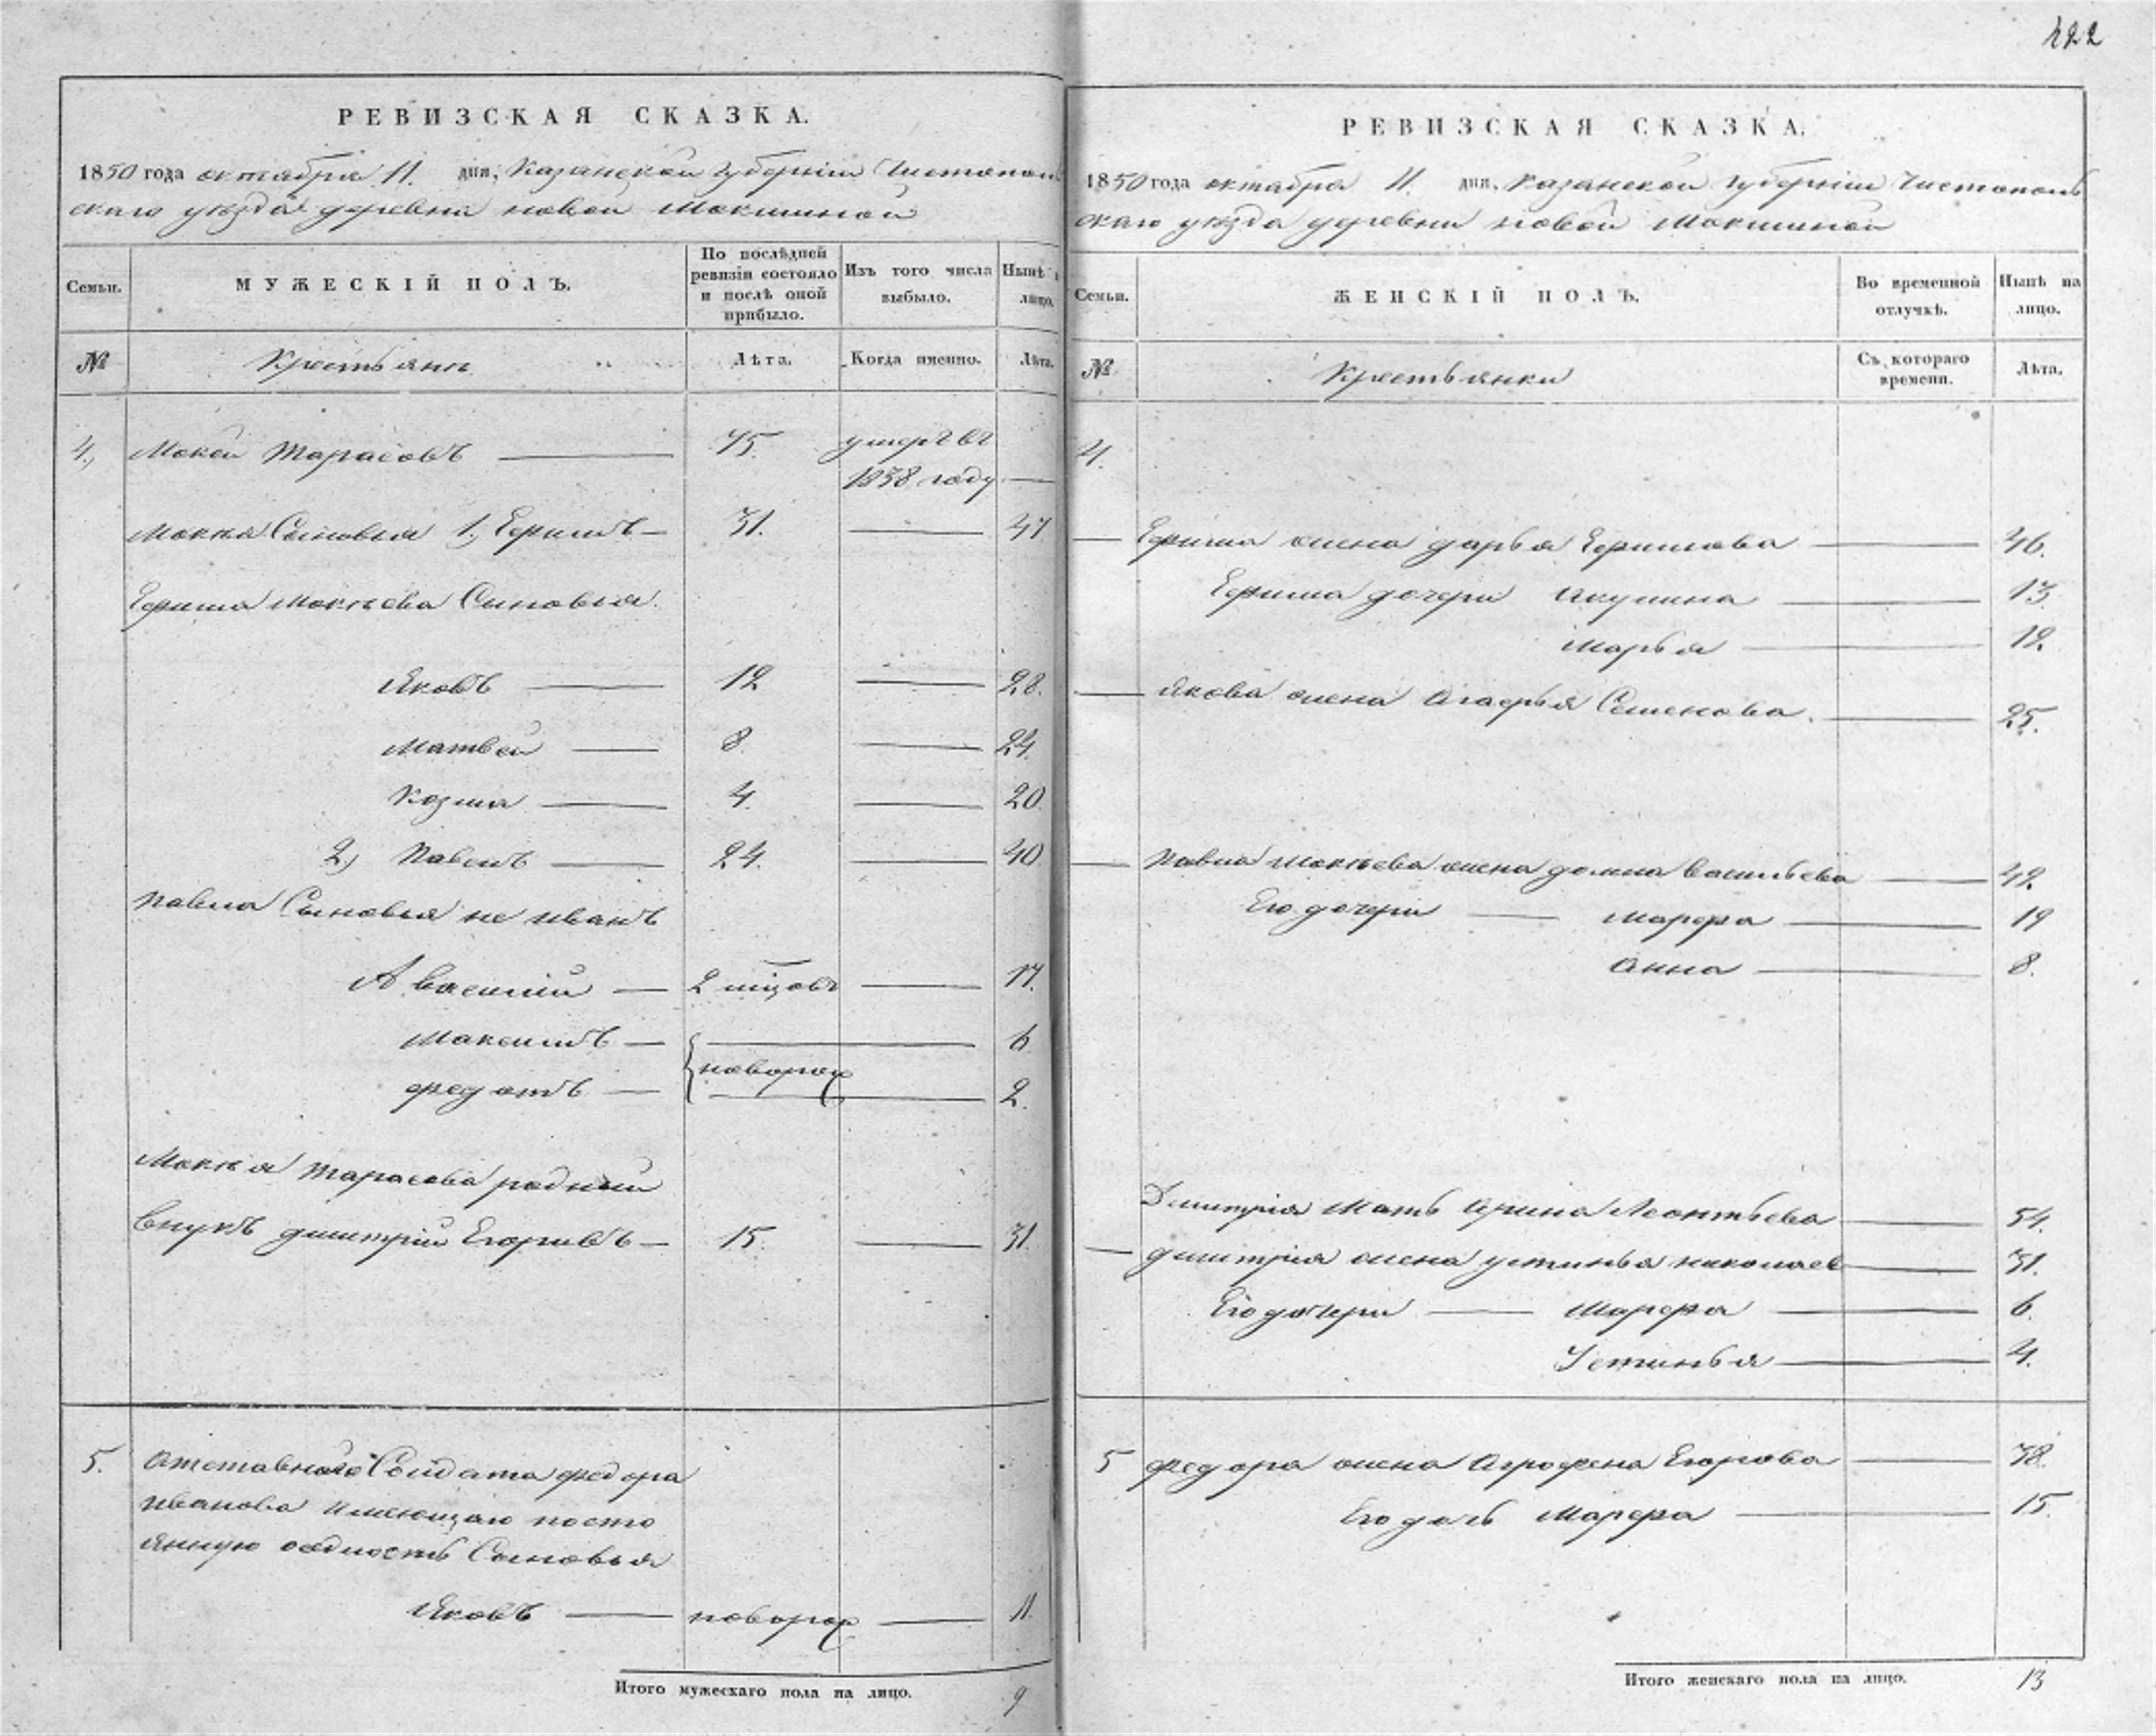 422
РЕВИЗСКАЯ СКАЗКА.
1850 года октября 11. дня, Казанской губерніи Чистополь
скаго уѣзда деревни новой Мокшиной
Семьи.
МУЖЕСКІЙ ПОЛЪ.
По послѣдней
ревизіи состояло
и послѣ оной
прибыло.
Изъ того числа
выбыло.
Нынѣ
лицо.
№
Крестьяне
Лѣта.
Когда именно.
Лѣта.
4, Мокей Тарасовъ 75. умеръ въ
1838 году
Мокея Сыновья 1, Ефимъ 31. 47
Ефима Мокѣева Сыновья.
Яковъ 12 28.
Матвей 8. 24.
Козма 4. 20.
2, Павелъ 24. 40
Павла Сыновья не иванъ
А василий 2 мцовъ 17.
Максимъ 6
новорож
федотъ 2.
Мокея Тарасова родный
внукъ дмитрій Егоровъ 15. 31.
5. Отставнаго Солдата федора
иванова имеющаго посто
янную оседлость Сыновья
Яковъ новорож 11.
Итого мужескаго пола на лицо. 9
РЕВИЗСКАЯ СКАЗКА.
1850 года октября 11. дня, Казанской губерніи Чистополь
скаго уѣзда деревни новой Мокшиной
Семьи.
ЖЕНСКІЙ ПОЛЪ.
Во временной
отлучкѣ.
Нынѣ на
лицо.
№
Крестьянки
Съ котораго
времени.
Лѣта.
4.
Ефима жена дарья Ефимова 46.
Ефима дочери Акулина 13.
Марья 12.
Якова жена Агафья Семенова. 25.
Павла Мокѣева жена домна васильева 42.
Его дочери Марфа 19
Анна 8.
Дмитрія Мать Арина Леонтьева 54.
дмитрія жена устинья николаев 31.
Его дочери Марфа 6.
Устинья 4.
5 федора жена Аграфена Егорова 38.
Его дочь Марфа 15.
Итого женскаго пола на лицо. 13